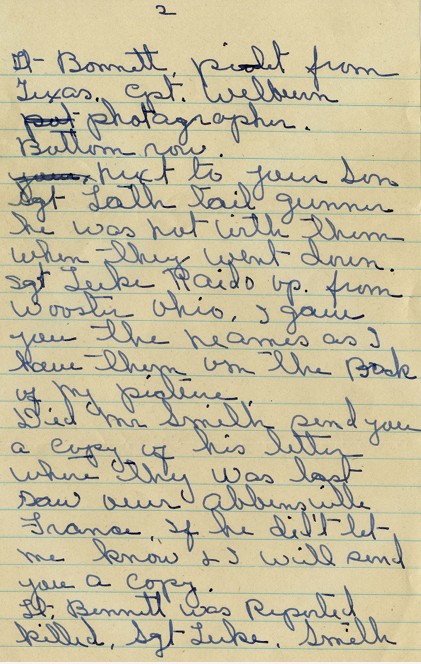 2
Lt Bonnett, pilot from
Texas. Cpt. Welburn
pot photagrapher.
Bottom row.
your, next to your Son
Sgt Lath tail gunner
he was not with them
when they went down.
Sgt Leike Raido op. from
Wooster Ohio, I gave
you the neames as I
have them on the Back
of my picture.
Died Mr Smith send you
a copy of his letter
where they was last
saw over Abbensville
France, if he did't let
me know & I will send
you a copy.
Lt. Bennett was Reported
killed, Sgt Leike, Smith